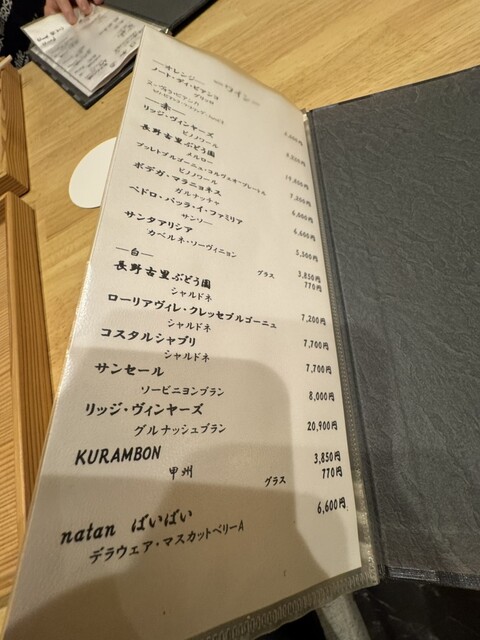 ワイン
―オレンジ―
ノート・ディ・ビアンコ
―赤―
リッジ・ヴィンヤーズ
ピノノワール
長野古里ぶどう園
メルロー
ピノノワール 7,200円
ボデガ・マラニョネス
ガルナッチャ 6,000円
ペドロ・パッラ・イ・ファミリア
サンソー 6,600円
サンタアリシア 5,500円
カベルネ・ソーヴィニョン
グラス 3,850円
770円
―白―
長野古里ぶどう園
シャルドネ 7,200円
ローリアヴィレ・クレッセブルゴーニュ
シャルドネ 7,700円
コスタルシャブリ
シャルドネ 7,700円
サンセール
ソービニヨンブラン 8,000円
リッジ・ヴィンヤーズ
グルナッシュブラン 20,900円
KURAMBON 3,850円
甲州 グラス 770円
natan ばいばい 6,600円
デラウェア・マスカットベリーA